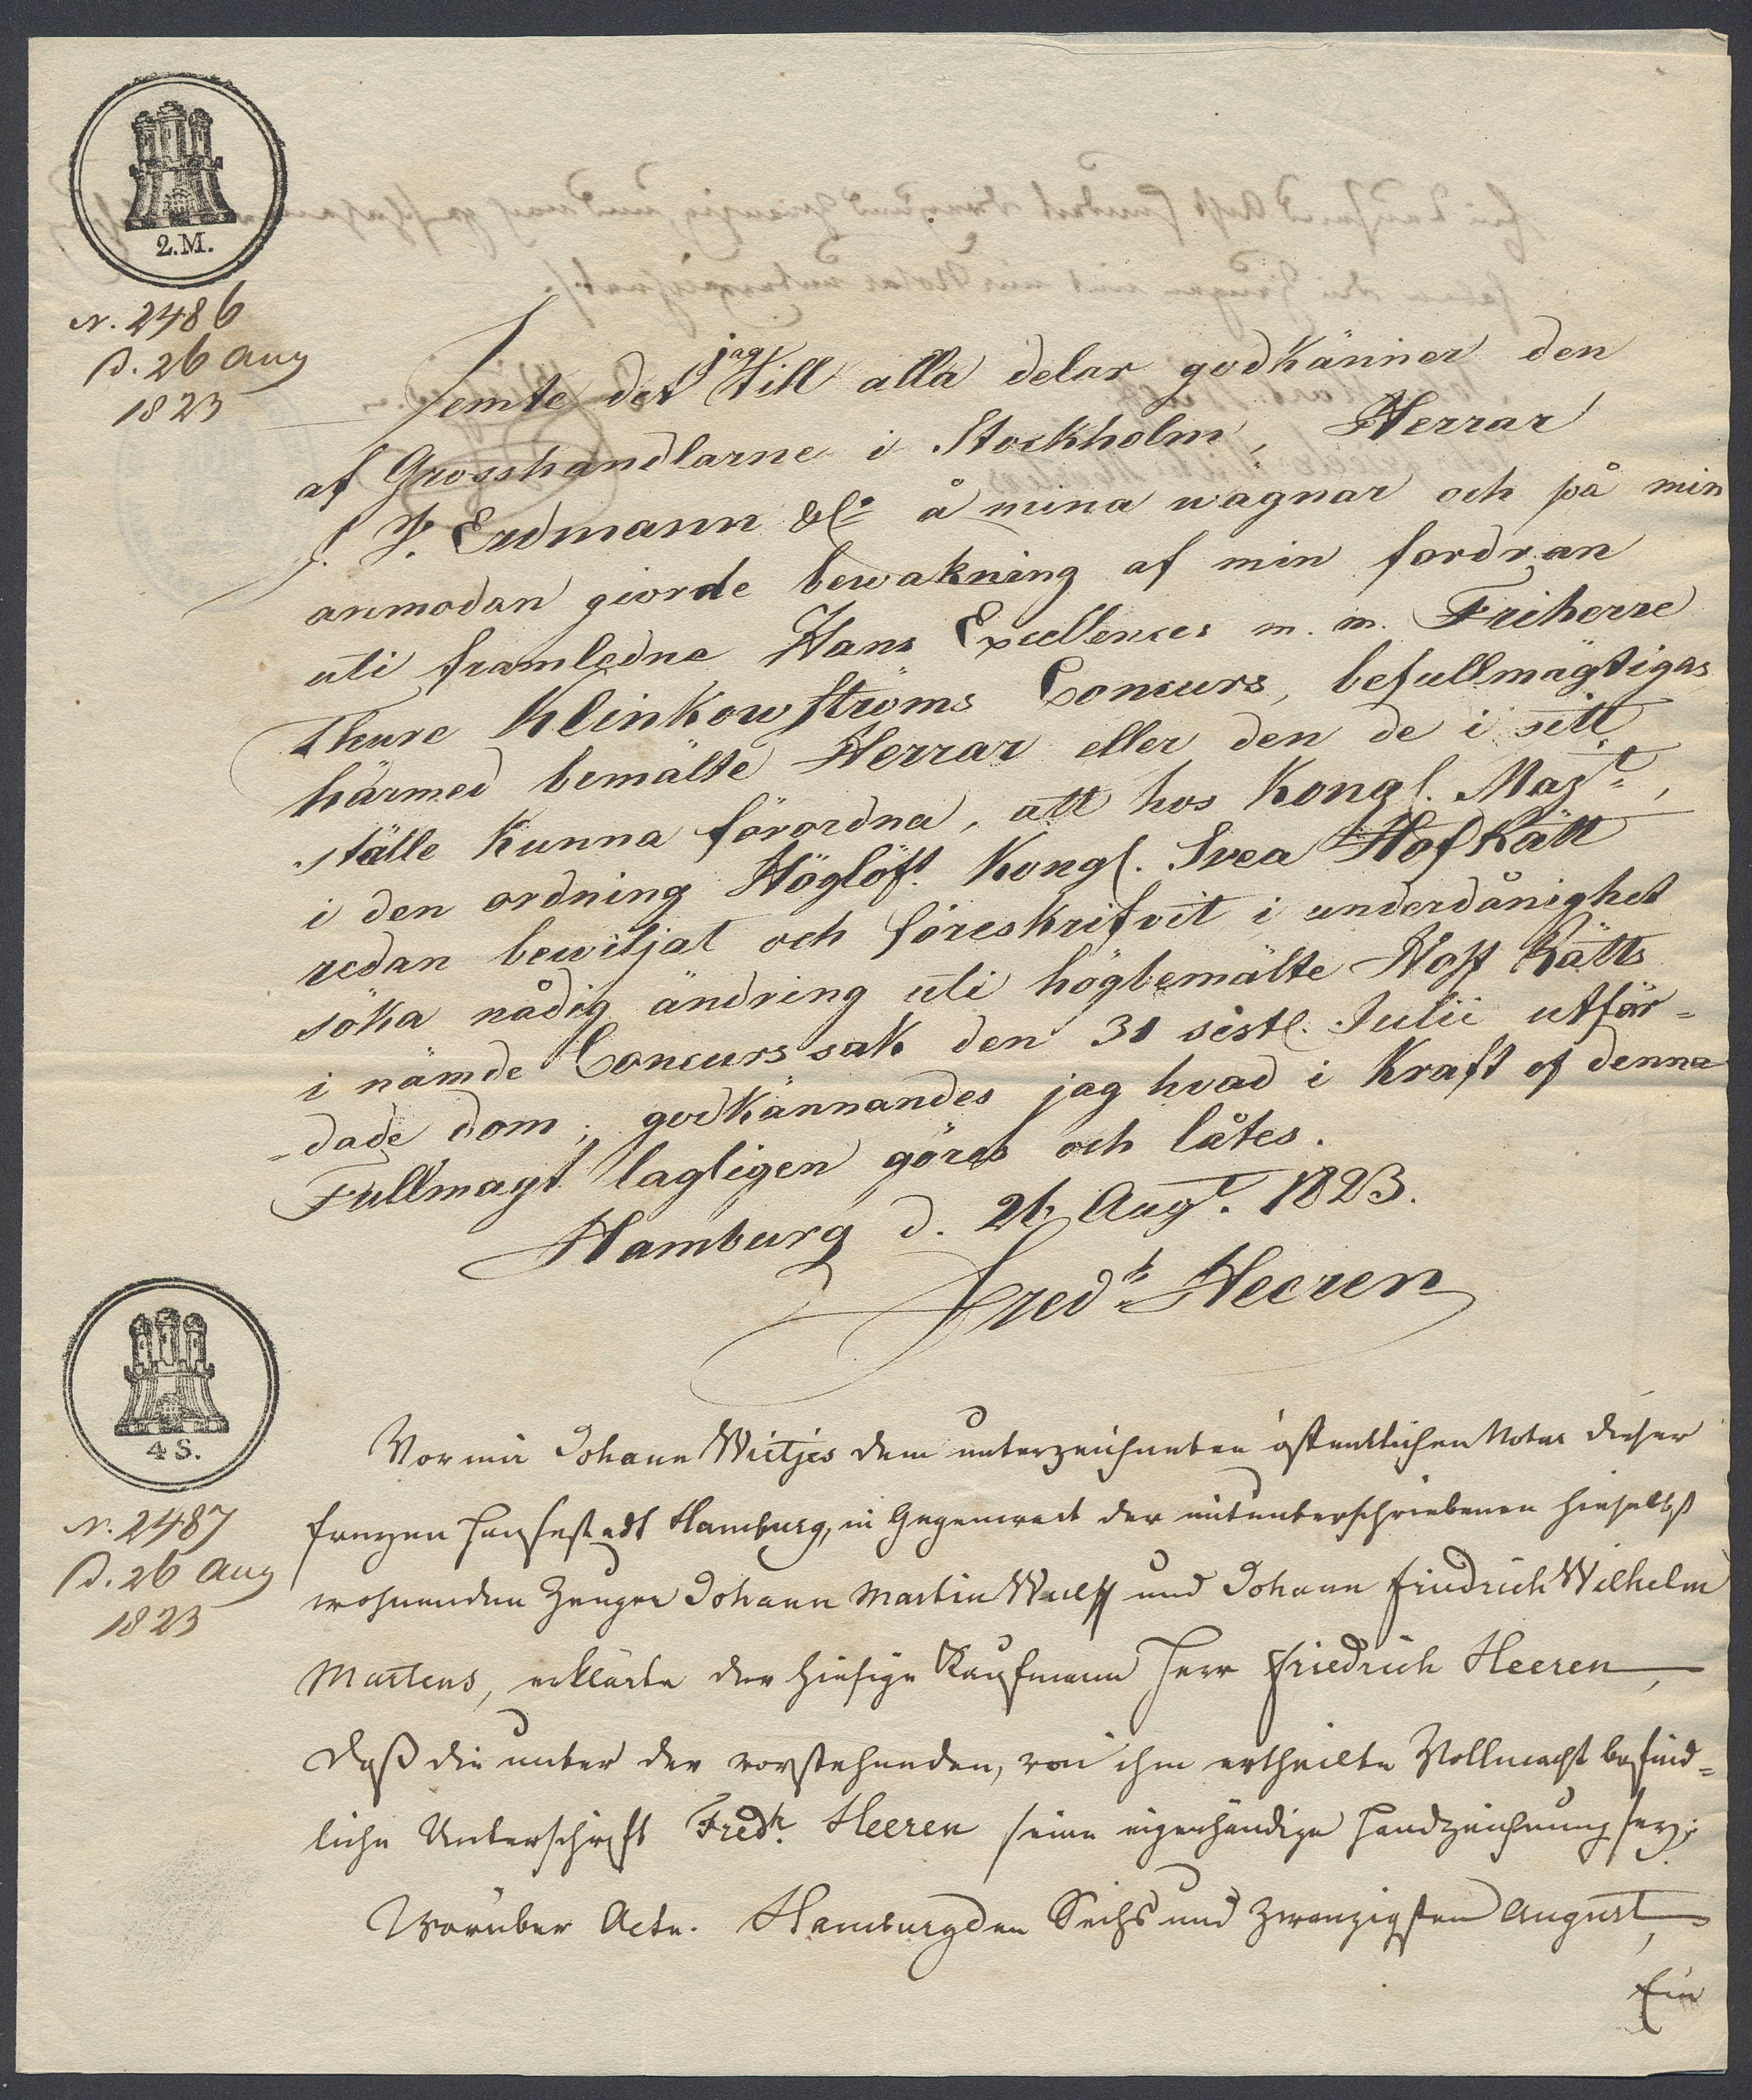 2.M.
N. 2486
d. 26 Aug
1823
Jemte det jag till alla delar godkänner den
af Grosshandlarne i Stockholm, Herrar
J. F. Erdmann & Co å mina wägnar och på min
anmodan giorde bewakning af min fordran
uti framledne Hans Excellences m. m. Friherre
Thure Klinkowströms Concurs, befullmägtigas
härmed bemälte Herrar eller den de i sitt
ställe kunna förordna, att hos Kongl. Majt,
i den ordning Höglöfl. Kongl. Svea HofRätt
redan bewiljat och föreskrifvit i underdånighet
söka nådig ändring uti högbemälte Hoff Rätts
i nämde Concurssak den 31 sistl. Julii utfär-
-dade dom; godkännandes jag hvad i kraft af denna
Fullmagt lagligen göres och låtes.
Hamburg d. 26 Augt. 1823.
Fredk Heeren
4 S.
N. 2487
d. 26 Aug
1823
Vor mir Johann Wietjes dem unterzeichneten öffentlichen Notar dieser
freyen Hansestadt Hamburg, in Gegenwart der mitunterschriebenen hieselbst
wohnenden Zeugen Johann Martin Wulff und Johann Friedrich Wilhelm
Martens, erklärte der hiesige Kaufmann Herr Friedrich Heeren,
daß die unter der vorstehenden, von ihm ertheilte Vollmacht befind-
liche Unterschrift Fredk. Heeren seine eigenhändige Handzeichnung sey;
Worüber Acte. Hamburg den Sechs und zwanzigsten August,
Ein